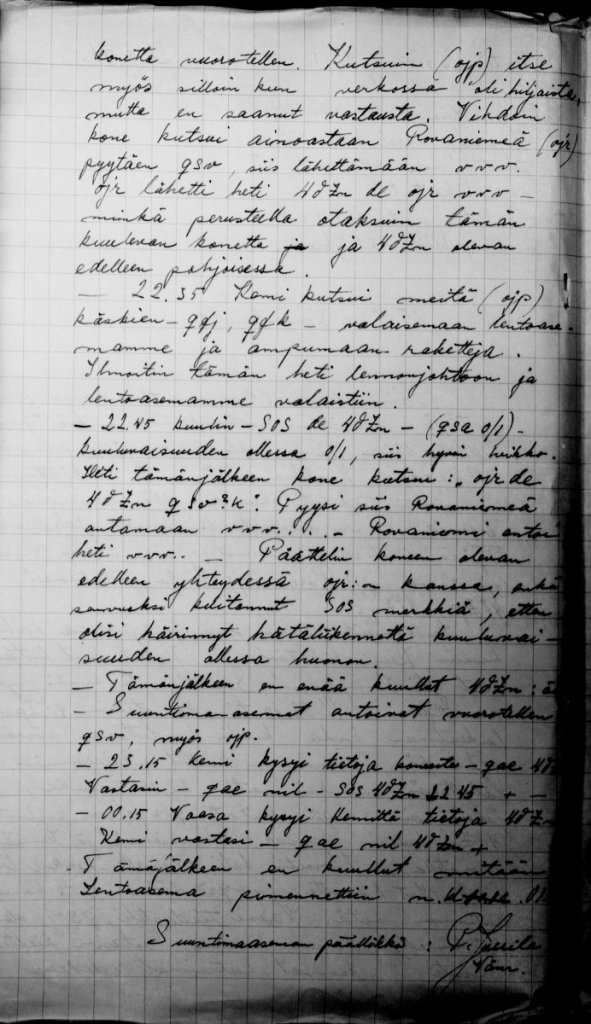 konetta vuorotellen. Kutsuin (ojp) itse
myös silloin kun verkossa oli hiljaista,
mutta en saanut vastausta. Vihdoin
kone kutsui ainoastaan Rovaniemeä (ojr)
pyytäen qsv, siis lähettämään v v v.
ojr lähetti heti de ojr v v v —
minkä perusteella otaksuin tämän
kuulevan konetta ja ja olevan
edelleen pohjoisessa.
— 22.35 Kemi kutsui meitä (ojp)
käskien - qfj, qfk - valaisemaan lentoase-
mamme ja ampumaan raketteja.
Ilmoitin tämän heti lennonjohtoon ja
lentoasemamme valaistiin.
— 22.45 kuulin - SOS de - (qsa 0/1) -
kuuluvaisuuden ollessa 0/1, siis hyvin heikko.
Heti tämänjälkeen kone kutsui: "ojr de
qsv? k". Pyysi siis Rovaniemeä
antamaan v v v... - Rovaniemi antoi
heti v v v.. — Päättelin koneen olevan
edelleen yhteydessä ojr:n kanssa, enkä
kuitannut SOS merkkiä, etten
olisi häirinnyt hätäliikennettä kuuluvai-
suuden ollessa huonon.
— Tämänjälkeen en enää kuullut
— Suuntima-asemat antoivat vuorotellen
qsv, myös ojp.
— 23.15 Kemi kysyi tietoja koneesta - qae
Vastasin - qae nil - SOS 22 45 + -
— 00.15 Vaasa kysyi Kemiltä tietoja
Kemi vastasi - qae nil +
Tämäjälkeen en kuullut mitään
Lentoasema pimennettiin n.
Suuntimaaseman päällikkö: P.